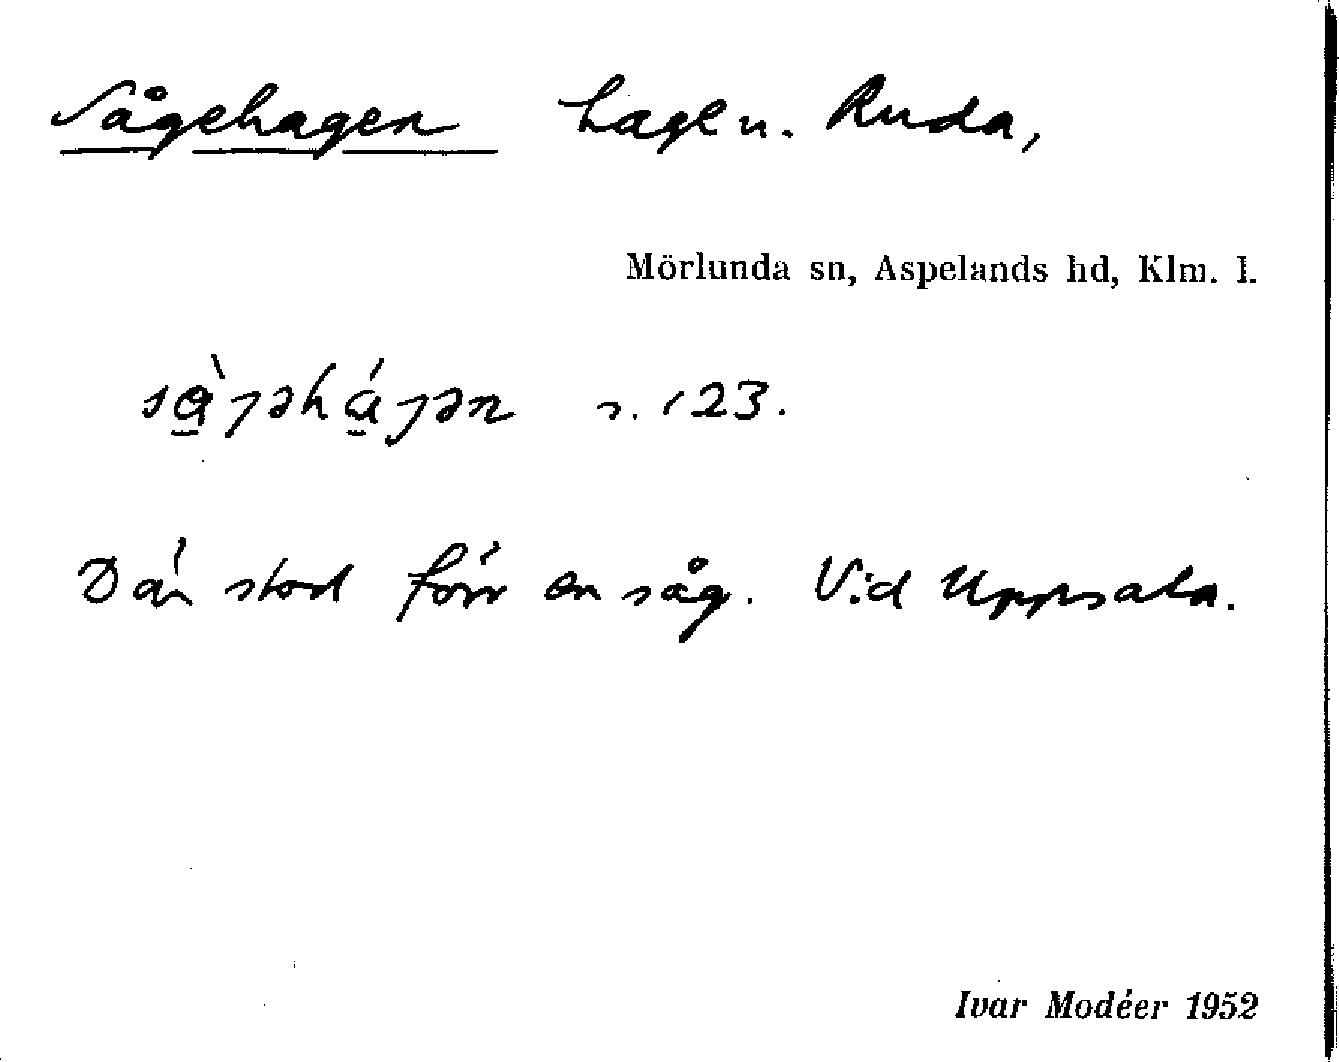 Sågehagen hage u. Ruda,
Mörlunda sn, Aspelands hd, Klm. l.
s. 123.
Där stod förr en såg. Vid Uppsala.
Ivar Modéer 1952